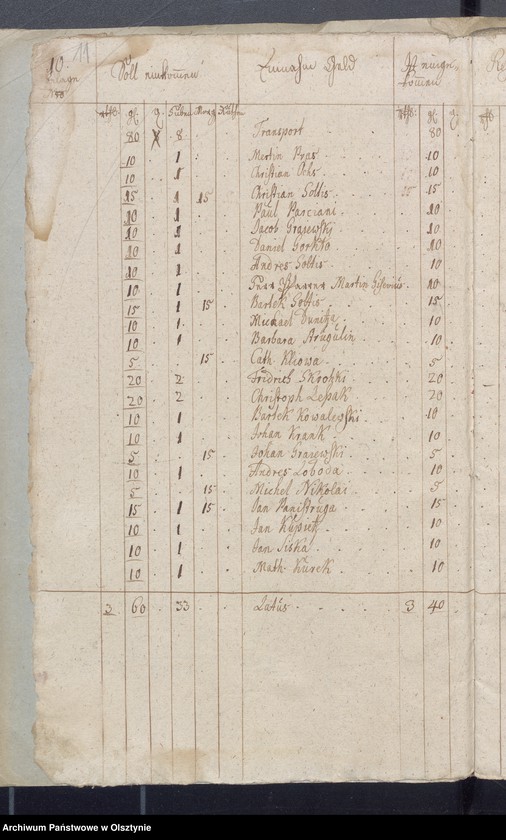 10 11
Soll einkommen Einnahm Geld Ist eingekommen Re
Huben Morg Ruthen
80 8 Transport 80
10 1 Mertin Pras 10
10 1 Christian Ochs 10
15 1 15 Christian Soltis 15
10 1 Paul Parciani 10
10 1 Jacob Grajewski 10
10 1 Daniel Gorkto 10
10 1 Andres Soltis 10
10 1 Martin Gisevius 10
15 1 15 Bartek Soltis 15
10 1 Michael Dunitza 10
10 1 Barbara Arugulin 10
5 15 Cath. Kliowa 5
20 2 Fridrich Skrotzki 20
20 2 Christoph Lepak 20
10 1 Bartek Kowalewski 10
10 1 Johan Krank 10
5 15 Johan Grajewski 5
10 1 Andres Loboda 10
5 15 Michel Nikolai 5
15 1 15 Jan Panistruga 15
10 1 Jan Kupiek 10
10 1 Jan Siska 10
10 1 Math. Kurek 10
3 60 33 Latus 3 40
Archiwum Państwowe w Olsztynie